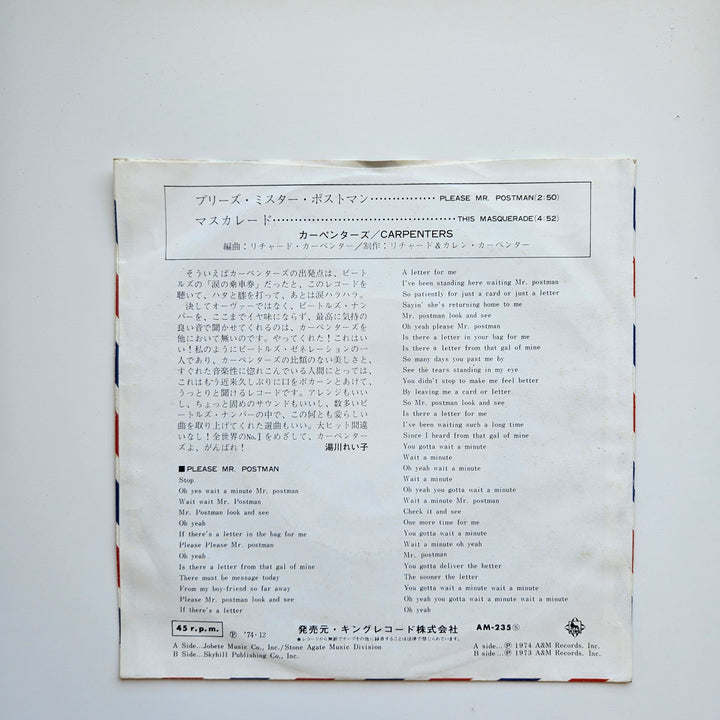 プリーズ・ミスター・ポストマン・・・・・・・・・・・・・・・PLEASE MR. POSTMAN(2:50)
マスカレード・・・・・・・・・・・・・・・・・・・・・・・・・・・・・・・・・・・・・・・・・・THIS MASQUERADE(4:52)
カーペンターズ/CARPENTERS
編曲:リチャード・カーペンター/制作:リチャード&カレン・カーペンター
そういえばカーペンターズの出発点は、ビート
ルズの「涙の乗車券」だったと、このレコードを
聴いて、ハタと膝を打って、あとは涙ハラハラ。
決してオーヴァーではなく、ビートルズ・ナン
バーを、ここまでイヤ味にならず、最高に気持の
良い音で聞かせてくれるのは、カーペンターズを
他において無いのです。やってくれた!これはい
い!私のようにビートルズ・ゼネレーションの一
人であり、カーペンターズの比類のない美しさと、
すぐれた音楽性に惚れこんでいる人間にとっては、
これはもう近来久しぶりに口をポカーンとあけて、
うっとりと聞けるレコードです。アレンジもいい
し、ちょっと固めのサウンドもいいし、数多いビ
ートルズ・ナンバーの中で、この何とも愛らしい
曲を取り上げてくれた選曲もいい。大ヒット間違
いなし!全世界のNo.1をめざして、カーペンター
ズよ、がんばれ! 湯川れい子
■PLEASE MR. POSTMAN
Stop
Oh yes wait a minute Mr. postman
Wait wait Mr. Postman
Mr. Postman look and see
Oh yeah
If there's a letter in the bag for me
Please Please Mr. postman
Oh yeah
Is there a letter from that gal of mine
There must be message today
From my boy-friend so far away
Please Mr. postman look and see
If there's a letter
A letter for me
I've been standing here waiting Mr. postman
So patiently for just a card or just a letter
Sayin' she's returning home to me
Mr. postman look and see
Oh yeah please Mr. postman
Is there a letter in your bag for me
Is there a letter from that gal of mine
So many days you past me by
See the tears standing in my eye
You didn't stop to make me feel better
By leaving me a card or letter
So Mr. postman look and see
Is there a letter for me
I've been waiting such a long time
Since I heard from that gal of mine
You gotta wait a minute
Wait a minute
Oh yeah wait a minute
Wait a minute
Oh yeah you gotta wait a minute
Wait a minute Mr. postman
Check it and see
One more time for me
You gotta wait a minute
Wait a minute oh yeah
Mr. postman
You gotta deliver the better
The sooner the letter
You gotta wait a minute wait a minute
Oh yeah you gotta wait a minute wait a minute
Oh yeah
45 r.p.m. Ⓟ '74・12 発売元・キングレコード株式会社 AM-235Ⓢ
●レコードから無断でテープその他に録音することは法律で禁じられています。
A Side...Jobete Music Co., Inc./Stone Agate Music Division
B Side...Skyhill Publishing Co., Inc.
A side...Ⓟ 1974 A&M Records. Inc.
B side...Ⓟ 1973 A&M Records. Inc.